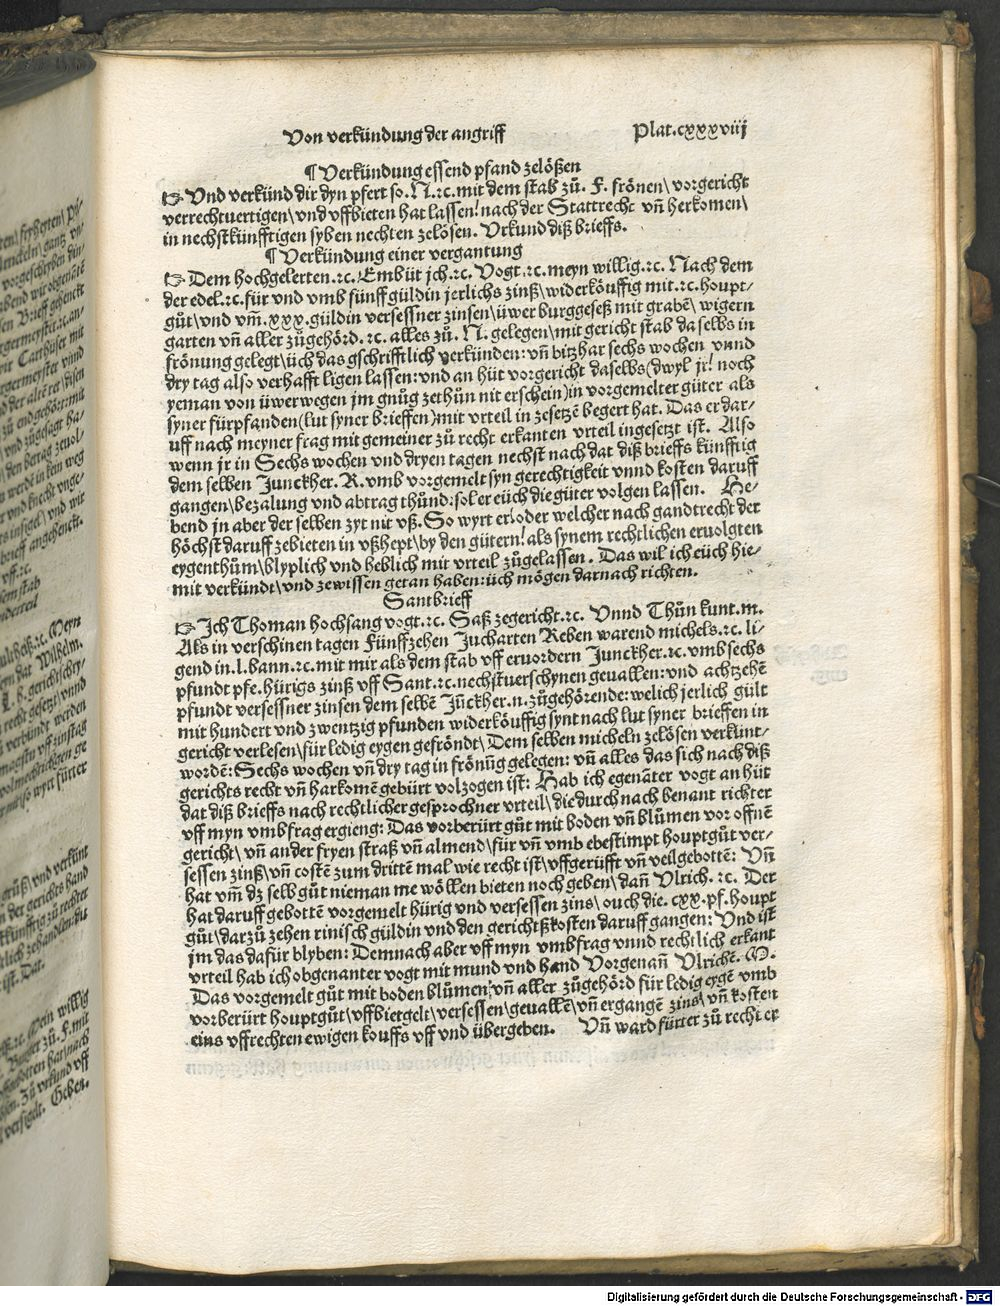 Von verkündung der angriff Plat.cxxxviij
¶ Verkündung essend pfand zelößen
☞ Vnd verkünd dir dyn pfert so. N.ꝛc.mit dem stab zů. F. frönen\ vorgericht
verrechtuertigen\ vnd vffbieten hat lassen! nach der Stattrecht vñ herkomen\
in nechstkünfftigen syben nechten zelösen. Vrkund diß brieffs.
¶ Verkündung einer vergantung
☞ Dem hochgelerten.ꝛc. Embüt jch.ꝛc. Vogt.ꝛc.meyn willig.ꝛc. Nach dem
der edel.ꝛc.für vnd vmb fünff güldin jerlichs zinß\widerköuffig mit.ꝛc.houpt-
gůt\vnd vm̃.xxx.güldin versessner zinsen\üwer burggeseß mit grabẽ\ wigern
garten vñ aller zůgehörd.ꝛc. alles zů. N. gelegen\mit gericht stab daselbs in
frönung gelegt\üch das gschrifftlich verkünden: vñ bitzhar sechs wochen vnnd
dry tag also verhafft ligen lassen: vnd an hüt vorgericht daselbs(dwyl jr! noch
yeman von üwer wegen jm gnůg zethůn nit erschein)in vorgemelter güter als
syner fürpfanden(lut syner brieffen)mit vrteil in zesetzẽ begert hat. Das er dar-
uff nach meyner frag mit gemeiner zů recht erkanten vrteil ingesetzt ist. Also
wenn jr in Sechs wochen vnd dryen tagen nechst nach dat diß brieffs künfftig
dem selben Junckher. R. vmb vorgemelt syn gerechtigkeit vnnd kosten daruff
gangen\bezalung vnd abtrag thůnd: sol er eüch die güter volgen lassen. He-
bend jn aber der selben zyt nit vß. So wyrt er! oder welcher nach gandtrecht der
höchst daruff zebieten in vßhept\by den gütern! als synem rechtlichen eruolgten
eygenthům\blyplich vnd heblich mit vrteil zůgelassen. Das wil ich eüch hie-
mit verkündt\vnd ze wissen getan haben: üch mögen darnach richten.
Gantbrieff
☞ Ich Thoman hochsang vogt.ꝛc. Saß zegericht.ꝛc. Vnnd Thůn kunt.m.
Als in verschinen tagen Fünffzehen Jucharten Reben warend michels.ꝛc. li-
gend in.l.bann.ꝛc.mit mir als dem stab vff eruordern Junckher.ꝛc.vmb sechs
pfundt pfe.hürigs zinß vff Sant.ꝛc.nechstuerschynen geuallen: vnd achtzehẽ
pfundt versessner zinsen dem selbẽ Jũckher.n.zůgehörende: welich jerlich gült
mit Hundert vnd zwentzig pfunden widerköuffig synt nach lut syner brieffen in
gericht verlesen\für ledig eygen gefröndt\ Dem selben micheln zelösen verkunt-
wordẽ: Sechs wochen vñ dry tag in frönũg gelegen: vñ alles das sich nach diß
gerichts recht vñ harkomẽ gebürt volzogen ist: Hab ich egenãter vogt an hüt
dat diß brieffs nach rechtlicher gesprochner vrteil\die durch nach benant richter
vff myn vmbfrag ergieng: Das vorberürt gůt mit boden vñ blůmen vor offnẽ
gericht\ vñ an der fryen straß vñ almend\für vñ vmb ebestimpt houptgůt ver-
sessen zinß\vñ costẽ zum drittẽ mal wie recht ist\vffgerüfft vñ veilgebottẽ: Vñ
hat vm̃ dz selb gůt nieman me wöllen bieten noch geben\dañ Vlrich.ꝛc. Der
hat daruff gebottẽ vorgemelt hürig vnd versessen zins\ ouch die. cxx.pf.houpt
gůt\darzů zehen rinisch güldin vnd den gerichtßkosten daruff gangen: Vnd ist
jm das dafür blyben: Demnach aber vff myn vmbfrag vnnd rechtlich erkant
vrteil hab ich obgenanter vogt mit mund vnd hand Vorgenañ Vlrichẽ.
Das vorgemelt gůt mit boden blůmen\vñ aller zůgehörd für ledig eygẽ vmb
vorberürt houptgůt\vffbietgelt\versessen\geuallẽ\vñ ergangẽ zins\vñ kosten
eins vffrechten ewigen kouffs vff vnd übergeben. Vñ ward fürter zů recht er
Digitalisierung gefördert durch die Deutsche Forschungsgemeinschaft - DFG